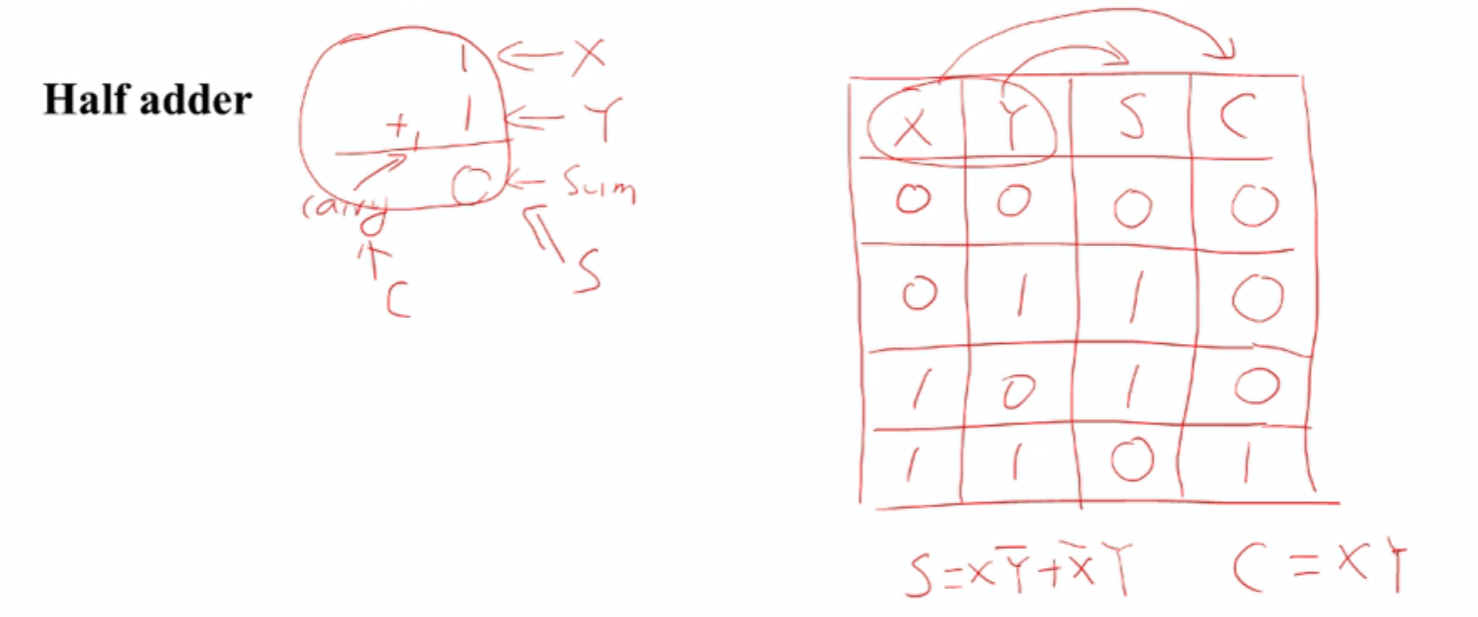 Half adder
1 ← X
+ 1 ← Y
1
0 ← Sum
carry
C
S
X Y S C
0 0 0 0
0 1 1 0
1 0 1 0
1 1 0 1
S=XY̅+X̅Y C=XY